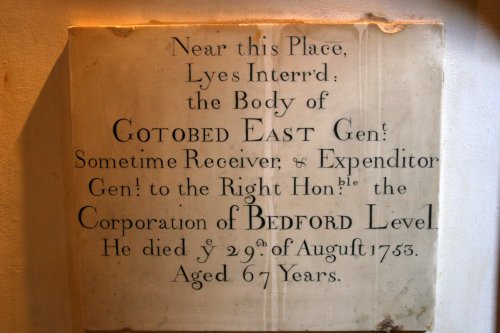 Near this Place,
Lyes Interr'd:
the Body of
GOTOBED EAST Gen.t
Sometime Receiver, & Expenditor
Gen.l to the Right Hon.ble the
Corporation of BEDFORD Level.
He died ye 29.th of Auguſt 1753.
Aged 67 Years.